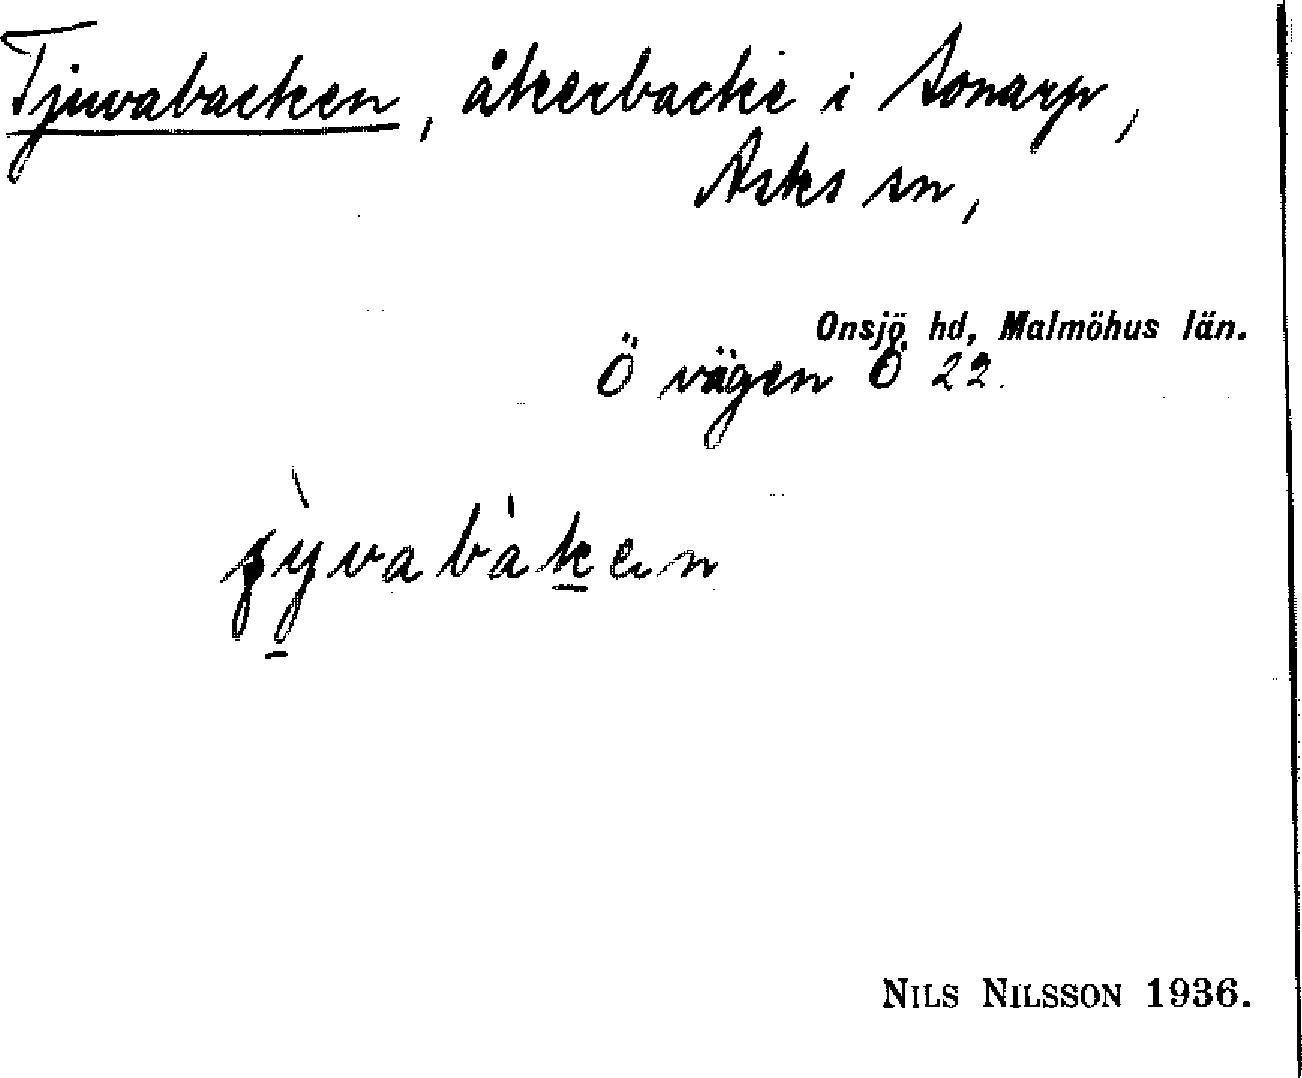 Tjuvabacken, åkerbacke i Aonarp,
Asks sn,
Onsjö hd, Malmöhus län.
Ö vägen Ö 22.
NILS NILSSON 1936.